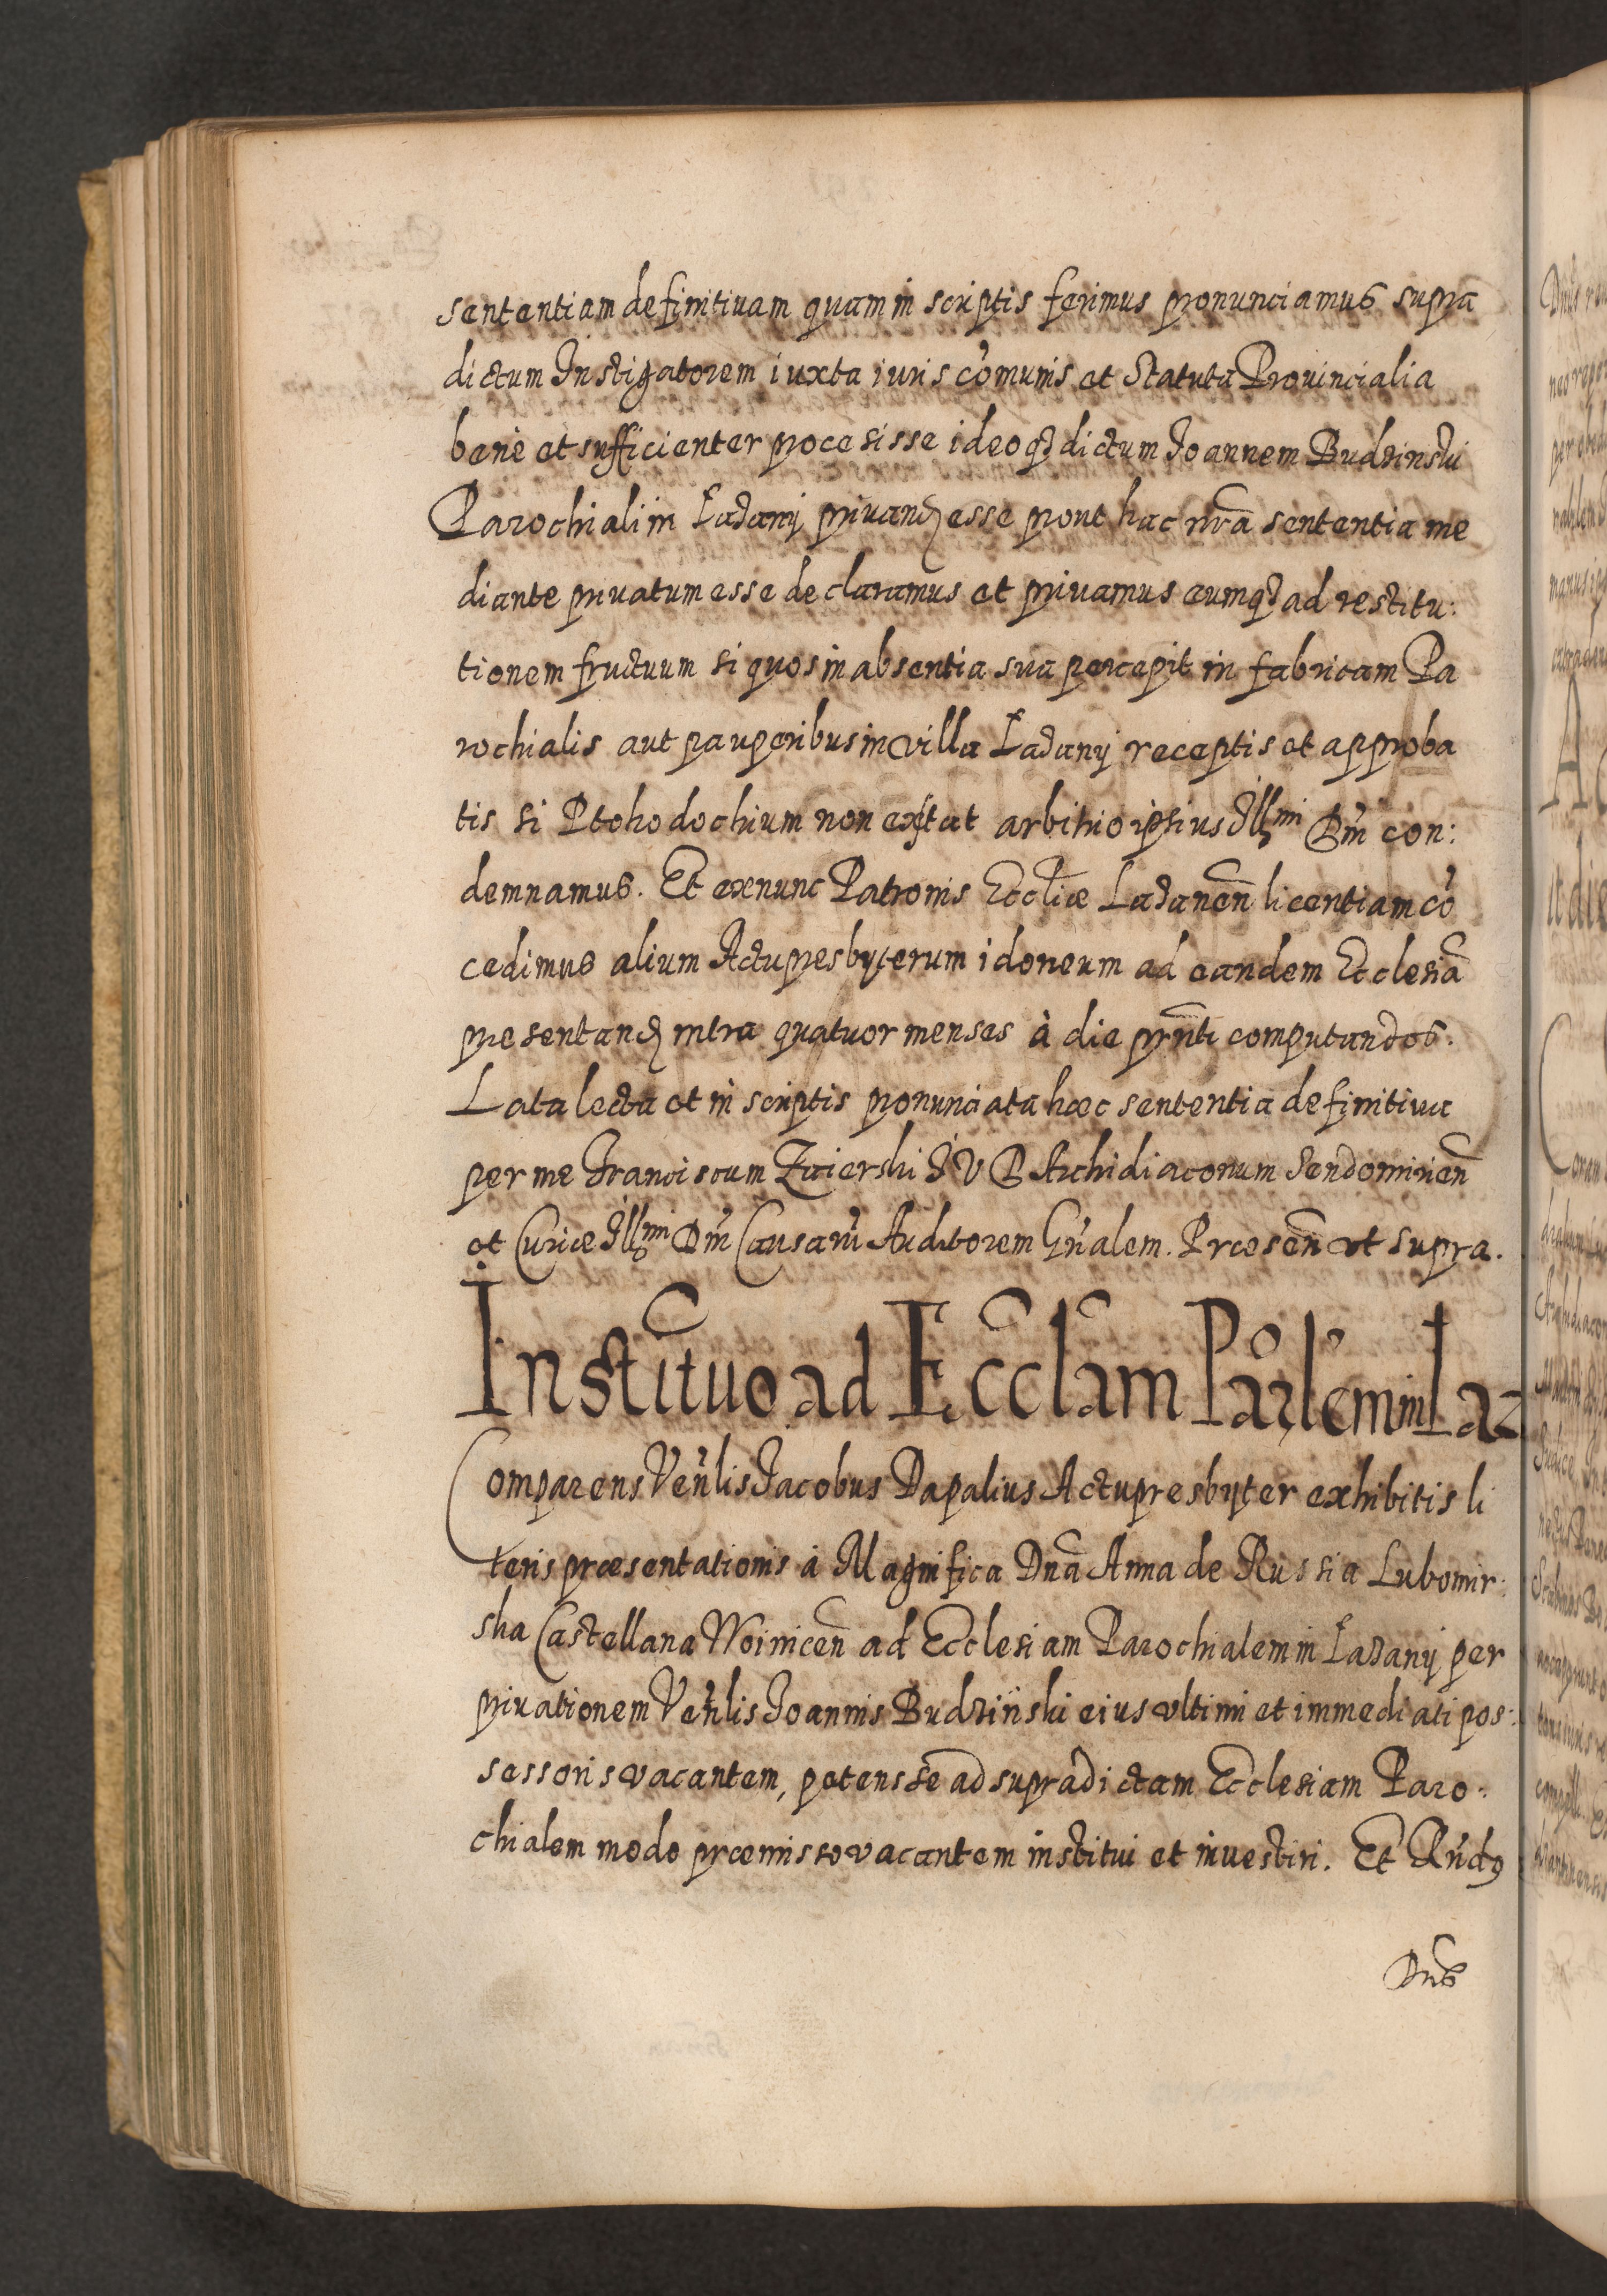 sententiam definitiuam quam in scriptis ferimus pronunciamus supra
dictum Instigatorem iuxta iuris cõmunis et Statuta Prouincialia
bene et sufficienter processisse ideoq₃ dictum Joannem Budzinski
Parochiali in Łazany priuand esse prout hac nrã sententia me
diante priuatum esse declaramus et priuamus eumq₃ ad restitu:
tionem fructuum si quos in absentia sua percepit in fabricam Pa
rochialis aut pauperibus in villa Łazany receptis et approba
tis si Ptohodochium non extat arbitrio ipsius Illmi Dni con:
demnamus. Et exnunc Patronis Eccliæ Lazaneñ licentiam cõ
cedimus alium Actupresbyterum idoneum ad eandem Ecclesiã
presentand intra quatuor menses à die prñti computandos.
Lata lecta et in scriptis pronunciata hæc sententia definitiua
per me Franciscum Zaierski I V D Archidiaconum Sendomirieñ
et Curiæ Illmi Dni Causarũ Auditorem Gñalem. Præseñ ut supra.
Institutuo ad Ecclam Parlem in Łaz
Comparens Veñlis Jacobus Dapalius Actupresbyter exhibitis li
teris præsentationis à Magnifica Dnã Anna de Russia Lubomir:
ska Castellana Woiniceñ ad Ecclesiam Parochialem in Łazany per
priuationem Veñlis Joannis Budziński eius vltimi et immediati pos:
sessoris vacantem, petens se ad supradictam Ecclesiam Paro:
chialem modo præmisso vacantem institui et inuestiri. Et Rñdg
Dñs